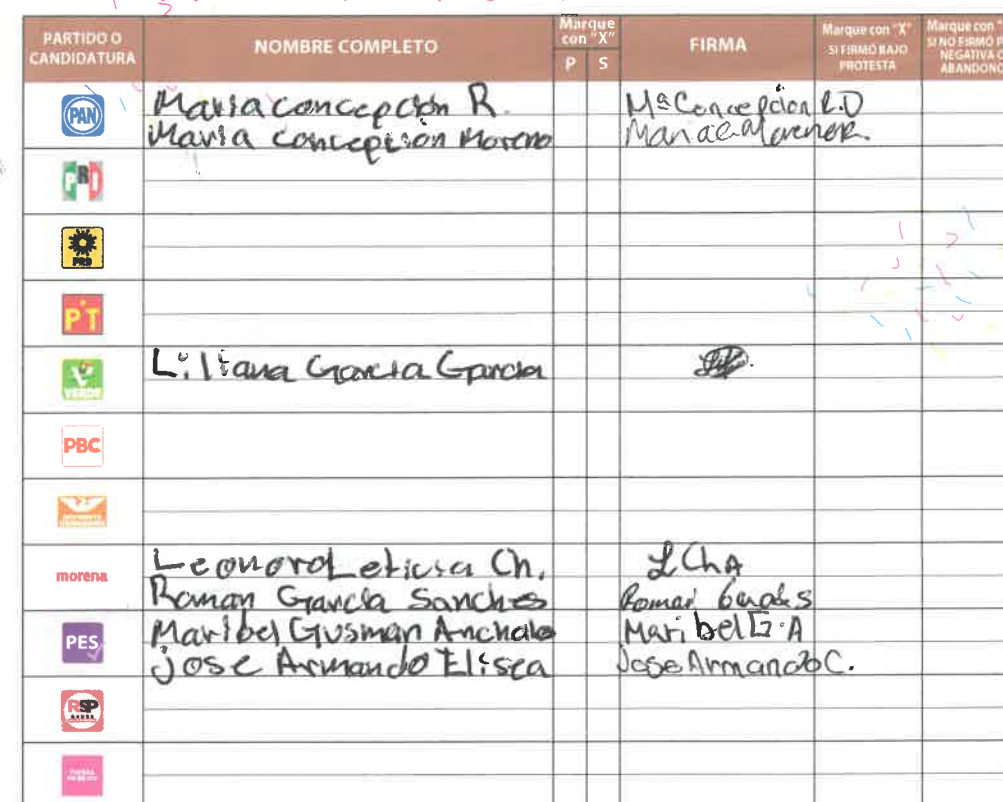 PARTIDO O CANDIDATURA
NOMBRE COMPLETO
Marque con "X"
P S
FIRMA
Marque con "X" SI FIRMÓ BAJO PROTESTA
SI NO FIRMÓ NEGATIVA ABANDONO
PAN Maria concepción R. Mª Concepción R.D
Maria concepcion Moreno
PRI
PRD
PT
VERDE Liliana Garcia Garcia
PBC
morena Leonor Leticia Ch. LChA
Roman Garcia Sanches
PES Maribel Gusman Anchalo Maribel G.A
Jose Armando Elisea Jose Armando C.
RSP